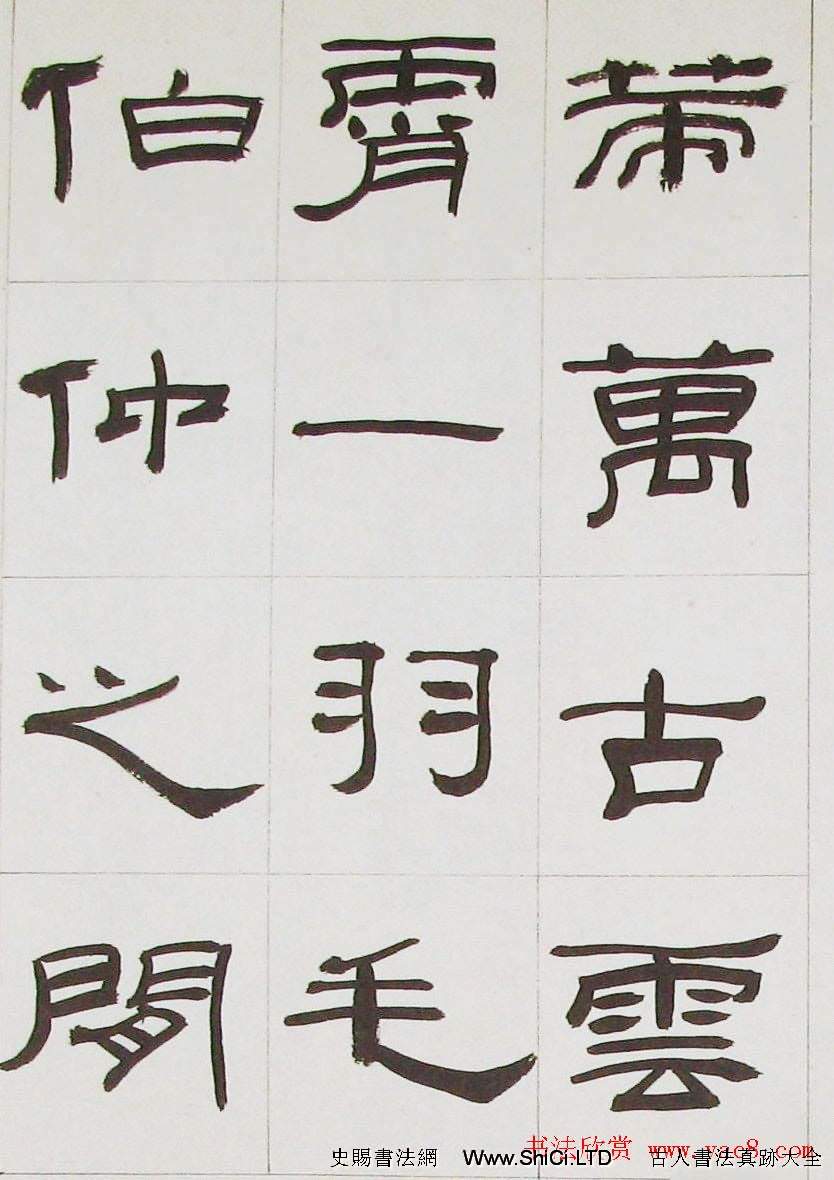 策萬古雲
霄一羽毛
伯仲之閒
书法欣赏 www.yac8.com
史賜書法網 Www.ShiCi.LTD 古人書法真跡大全